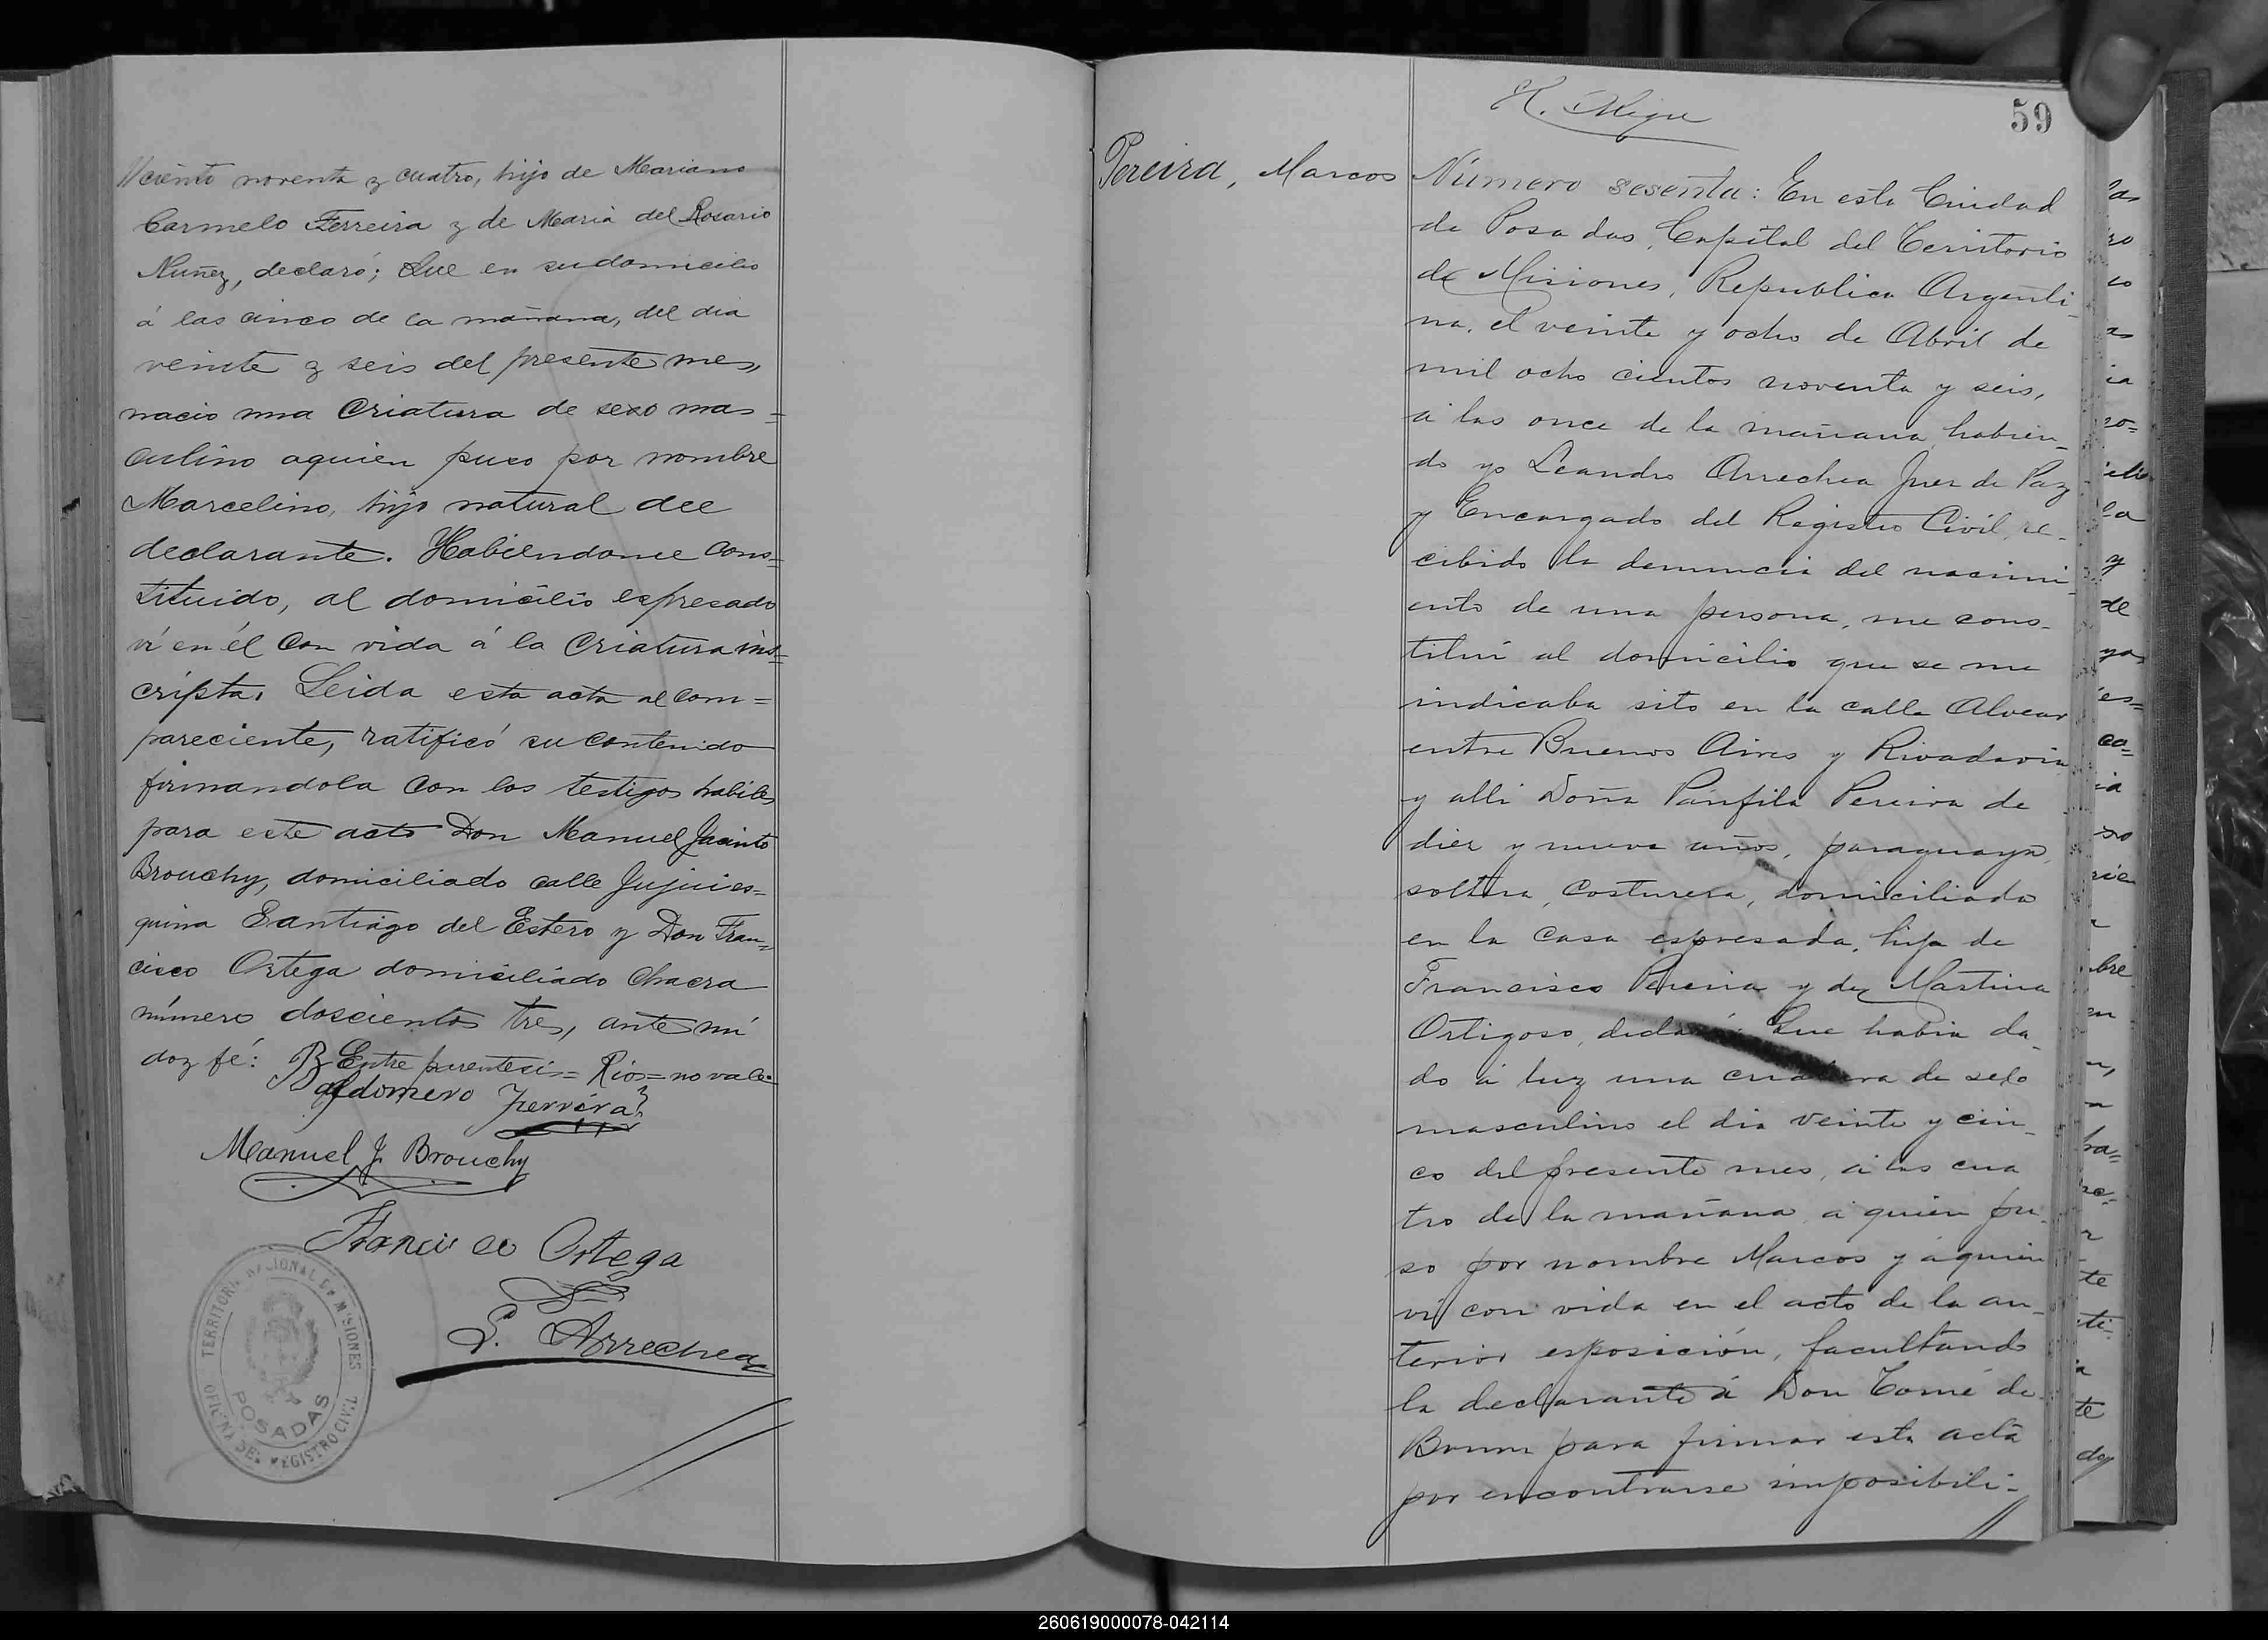 ciento noventa y cuatro, hijo de Mariano
Carmelo Ferreira y de Maria del Rosario
Nuñez, declaró; Que en su domicilio
á las cinco de la mañana, del dia
veinte y seis del presente mes,
nació una criatura de sexo mas=
culino aquien puso por nombre
Marcelino, hijo natural del
declarante. Habiendome cons=
tituido, al domicilio espresado
ví en él con vida á la criatura ins=
cripta. Leida esta acta al com=
pareciente, ratificó su contenido
firmandola con los testigos habiles
para este acto Don Manuel Jacinto
Brouchy, domiciliado calle Jujui es=
quina Santiago del Estero y Don Fran=
cisco Ortega domiciliado Chacra
número doscientos tres, ante mí
doy fé: Entre parentesis = Rios = no vale
Baldomero Ferreira
Manuel J. Brouchy
Francisco Ortega
L. Arrechea
TERRITORIO NACIONAL DE MISIONES
POSADAS
OFICINA DEL REGISTRO CIVIL
59
Pereira, Marcos
Número sesenta: En esta Ciudad
de Posadas, Capital del Territorio
de Misiones, Republica Argenti-
na, el veinte y ocho de Abril de
mil ocho cientos noventa y seis,
á las once de la mañana, habien-
do yo Leandro Arrechea Juez de Paz
y Encargado del Registro Civil, re-
cibido la denuncia del nacimi-
ento de una persona, me cons-
tituí al domicilio que se me
indicaba sito en la calle Alvear
entre Buenos Aires y Rivadavia
y alli Doña Pánfila Pereira de
diez y nueve años, paraguaya,
soltera, costurera, domiciliada
en la casa espresada, hija de
Francisco Pereira y de Martina
Ortigoso, declaró: Que habia da-
do á luz una criatura de sexo
masculino el dia veinte y cin-
co del presente mes, á las cua
tro de la mañana, á quien pu-
so por nombre Marcos y á quien
ví con vida en el acto de la an-
terior esposición, facultando
la declarante á Don Tomé de
para firmar esta acta
por encontrarse imposibili-
260619000078-042114